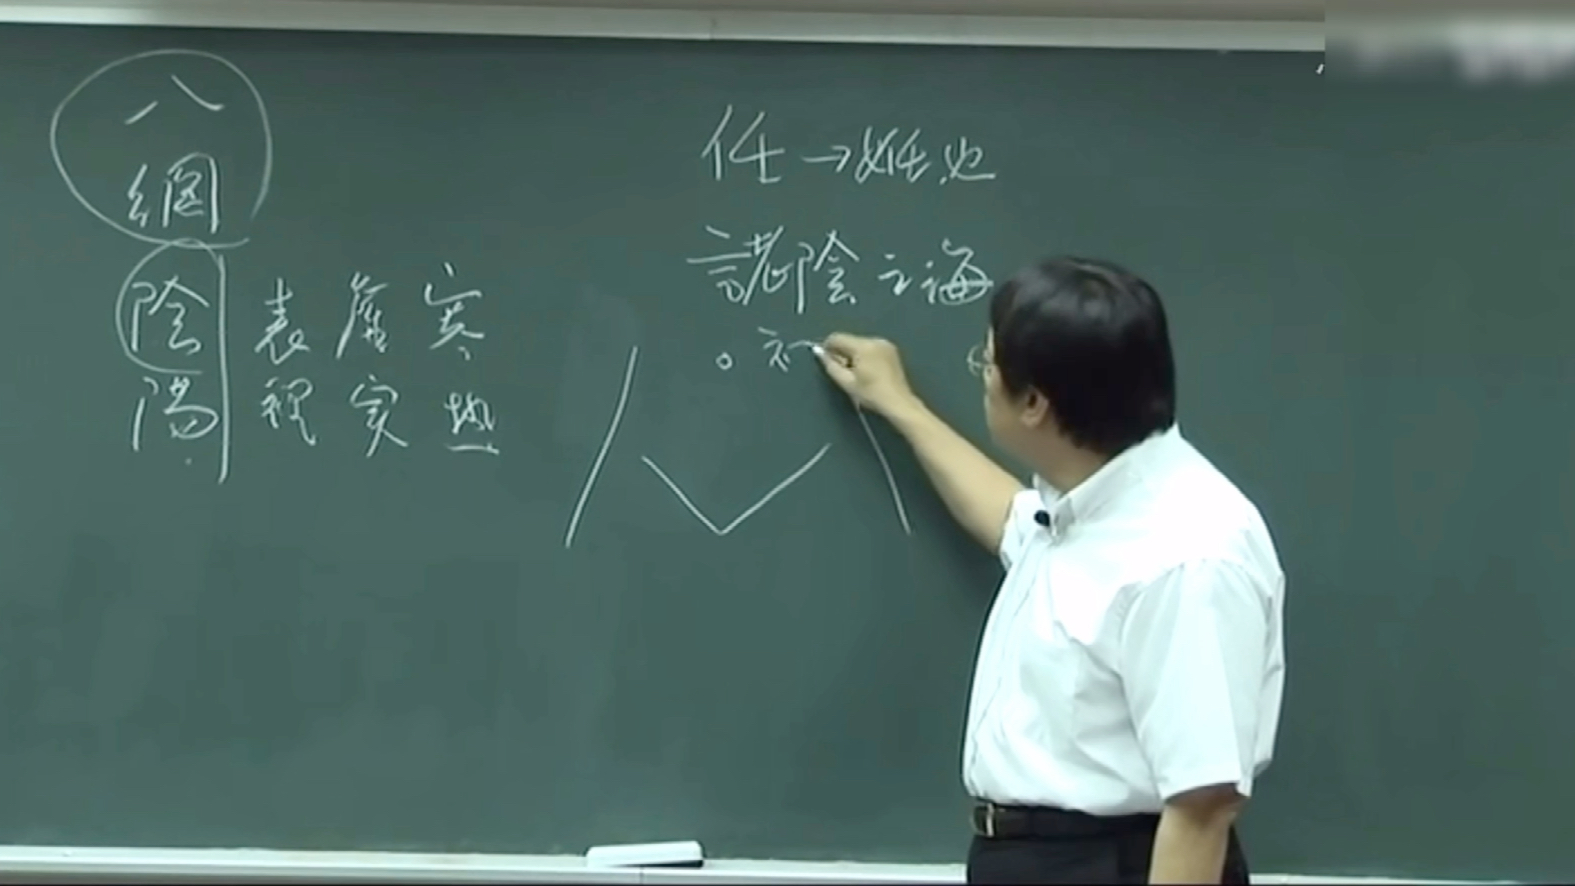 八
綱
陰 表 虛 寒
陽 裡 実 热
任→妊也
諸陰之海